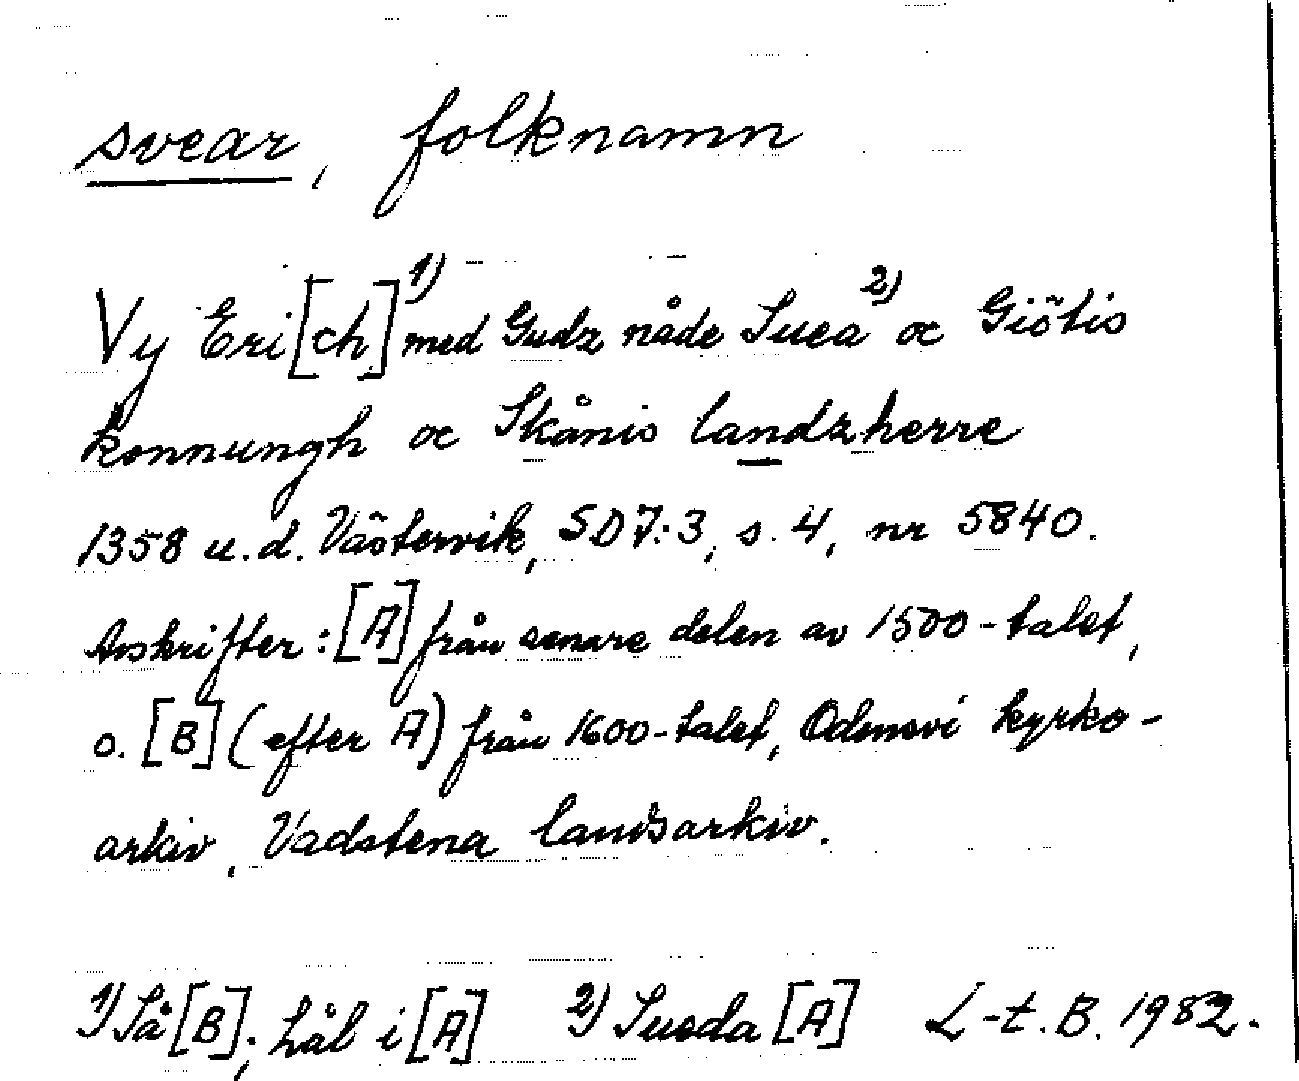 svear, folknamn
Vy Eri[ch]1) med Gudz nåde Suea2) oc Giötis
konnungh oc Skånis landzherre
1358 u.d. Västervik, SD 7:3, s. 4, nr 5840.
Avskrifter: [A] från senare delen av 1500-talet,
o. [B] (efter A) från 1600-talet, Odensvi kyrko-
arkiv, Vadstena landsarkiv.
1) Så [B]; hål i [A] 2) Sueda [A] L-t. B. 1982.